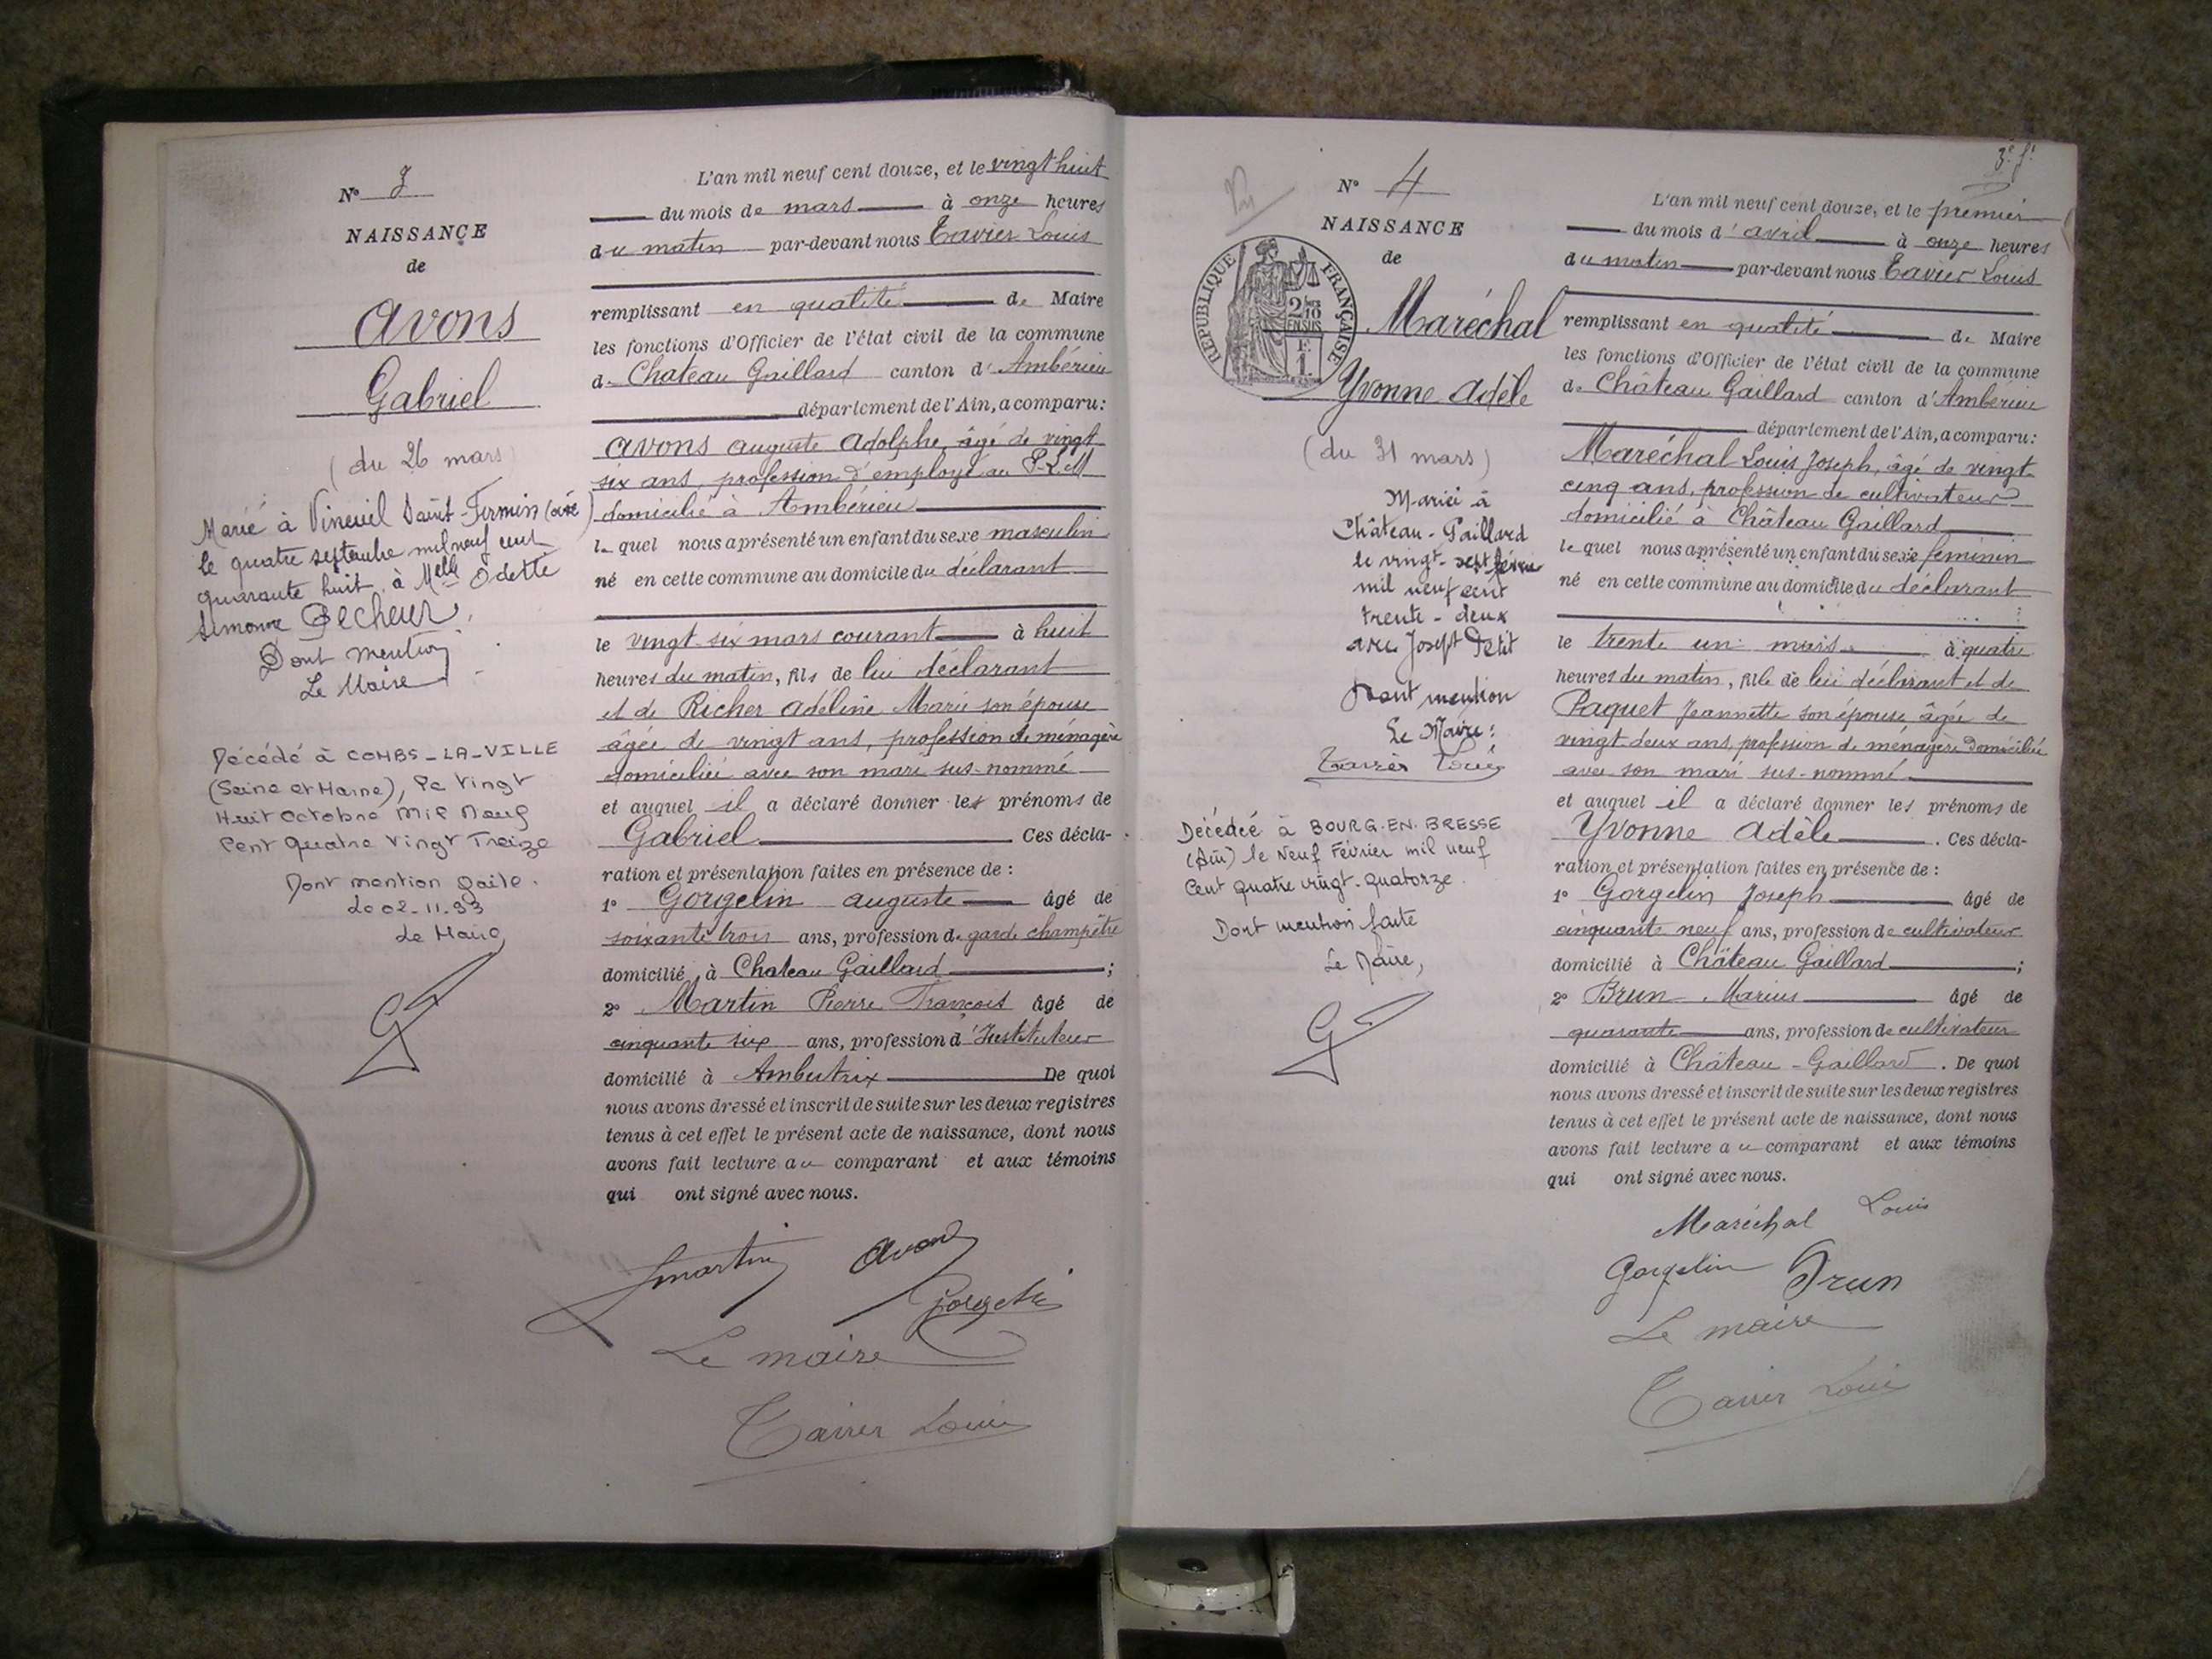 N° 3
NAISSANCE
de
Avons
Gabriel
(du 26 mars)
Marié à Vineuil Saint-Firmin (oise)
le quatre septembre mil neuf cent
quarante huit à Melle Odette
Simone Pecheur
Dont mention
Le Maire
Décédé à COMBS-LA-VILLE
(Seine et Marne), le Vingt
Huit Octobre Mil Neuf
Cent Quatre Vingt Treize
Dont mention faite.
Le 02-11-93
Le Maire
L'an mil neuf cent douze, et le vingt huit
du mois de mars à onze heures
du matin par-devant nous Tavier Louis
remplissant en qualité de Maire
les fonctions d'Officier de l'état civil de la commune
de Chateau Gaillard canton d'Ambérieu
département de l'Ain, a comparu:
Avons Auguste Adolphe, âgé de vingt
six ans, profession d'employé au P-L-M
domicilié à Ambérieu
le quel nous a présenté un enfant du sexe masculin
né en cette commune au domicile du déclarant
le vingt-six mars courant à huit
heures du matin, fils de lui déclarant
et de Richer Adeline Marie son épouse
âgée de vingt ans, profession de ménagère
domiciliée avec son mari sus-nommé
et auquel il a déclaré donner les prénoms de
Gabriel Ces décla-
ration et présentation faites en présence de :
1° Gorgelin Auguste âgé de
soixante trois ans, profession de garde champêtre
domicilié à Chateau Gaillard ;
2° Martin Pierre François âgé de
cinquante six ans, profession d'Instituteur
domicilié à Ambutrix De quoi
nous avons dressé et inscrit de suite sur les deux registres
tenus à cet effet le présent acte de naissance, dont nous
avons fait lecture au comparant et aux témoins
qui ont signé avec nous.
Martin Avons
Gorgelin
Le maire
Tavier Louis
3e f.
N° 4
NAISSANCE
de
RÉPUBLIQUE FRANÇAISE
2/10
EN SUS
F.
1.
Maréchal
Yvonne Adèle
(du 31 mars)
Mariée à
Château-Gaillard
le vingt-sept février
mil neuf cent
trente-deux
avec Joseph Petit
Dont mention
Le Maire:
Tavier Louis
Décédée à BOURG-EN-BRESSE
(Ain) le Neuf Février mil neuf
Cent quatre vingt-quatorze.
Dont mention faite
Le Maire,
L'an mil neuf cent douze, et le premier
du mois d'avril à onze heures
du matin par-devant nous Tavier Louis
remplissant en qualité de Maire
les fonctions d'Officier de l'état civil de la commune
de Château Gaillard canton d'Ambérieu
département de l'Ain, a comparu:
Maréchal Louis Joseph, âgé de vingt-
cinq ans, profession de cultivateur
domicilié à Château Gaillard
le quel nous a présenté un enfant du sexe féminin
né en cette commune au domicile du déclarant
le trente un mars à quatre
heures du matin, fille de lui déclarant et de
Paquet Jeannette son épouse âgée de
vingt deux ans, profession de ménagère domiciliée
avec son mari sus-nommé
et auquel il a déclaré donner les prénoms de
Yvonne Adèle . Ces décla-
ration et présentation faites en présence de :
1° Gorgelin Joseph âgé de
cinquante neuf ans, profession de cultivateur
domicilié à Château Gaillard ;
2° Brun Marius âgé de
quarante ans, profession de cultivateur
domicilié à Château-Gaillard . De quoi
nous avons dressé et inscrit de suite sur les deux registres
tenus à cet effet le présent acte de naissance, dont nous
avons fait lecture au comparant et aux témoins
qui ont signé avec nous.
Maréchal Louis
Gorgelin Brun
Le maire
Tavier Louis